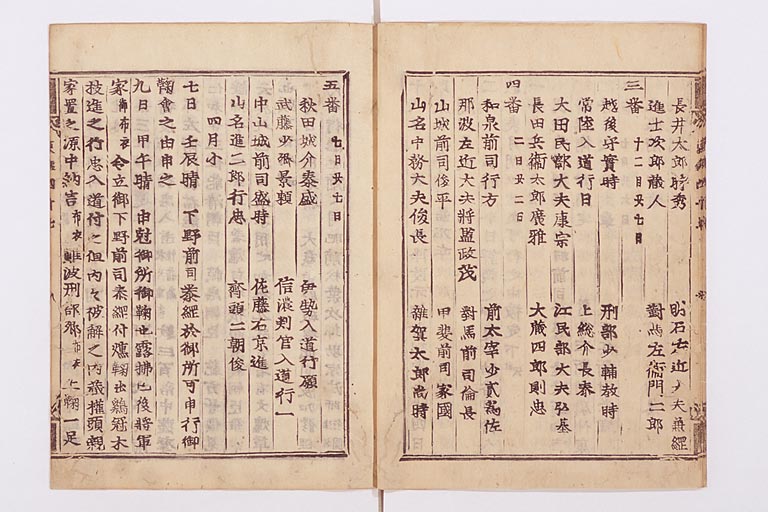 長井太郎時秀 明石左近大夫兼經
進士次郎藏人 對馬左衛門二郎
三番 十二日廿七日
越後守實時 刑部少輔教時
常陸入道行日 上総介長泰
大田民部大夫康宗 江民部大夫以基
長田兵衛太郎廣雅 大蔵四郎則忠
四番 二日廿二日
和泉前司行方 前太宰少貳為佐
那波左近大夫將監政茂 對馬前司倫長
山城前司俊平 甲斐前司家國
山名中務大夫俊長 雜賀太郎尚時
五番 七日廿七日
秋田城介泰盛 伊勢入道行願
武藤少卿景頼 信濃判官入道行一
中山城前司盛時 佐藤右京進
山名進二郎行忠 齊頭二朝俊
四月小
七日 壬辰晴 下野前司泰經於御所可申行御
鞠會之由申之
九日 三甲午晴 由尅御所御鞠也露拂已後將軍
家 御布衣 令立御下野前司泰經付燻鞠出鷄冠木
技進之行忠入道付之但內々被解之內藏權頭親
家置之源中納言 布衣 難波刑部卿 布衣 上鞠一足